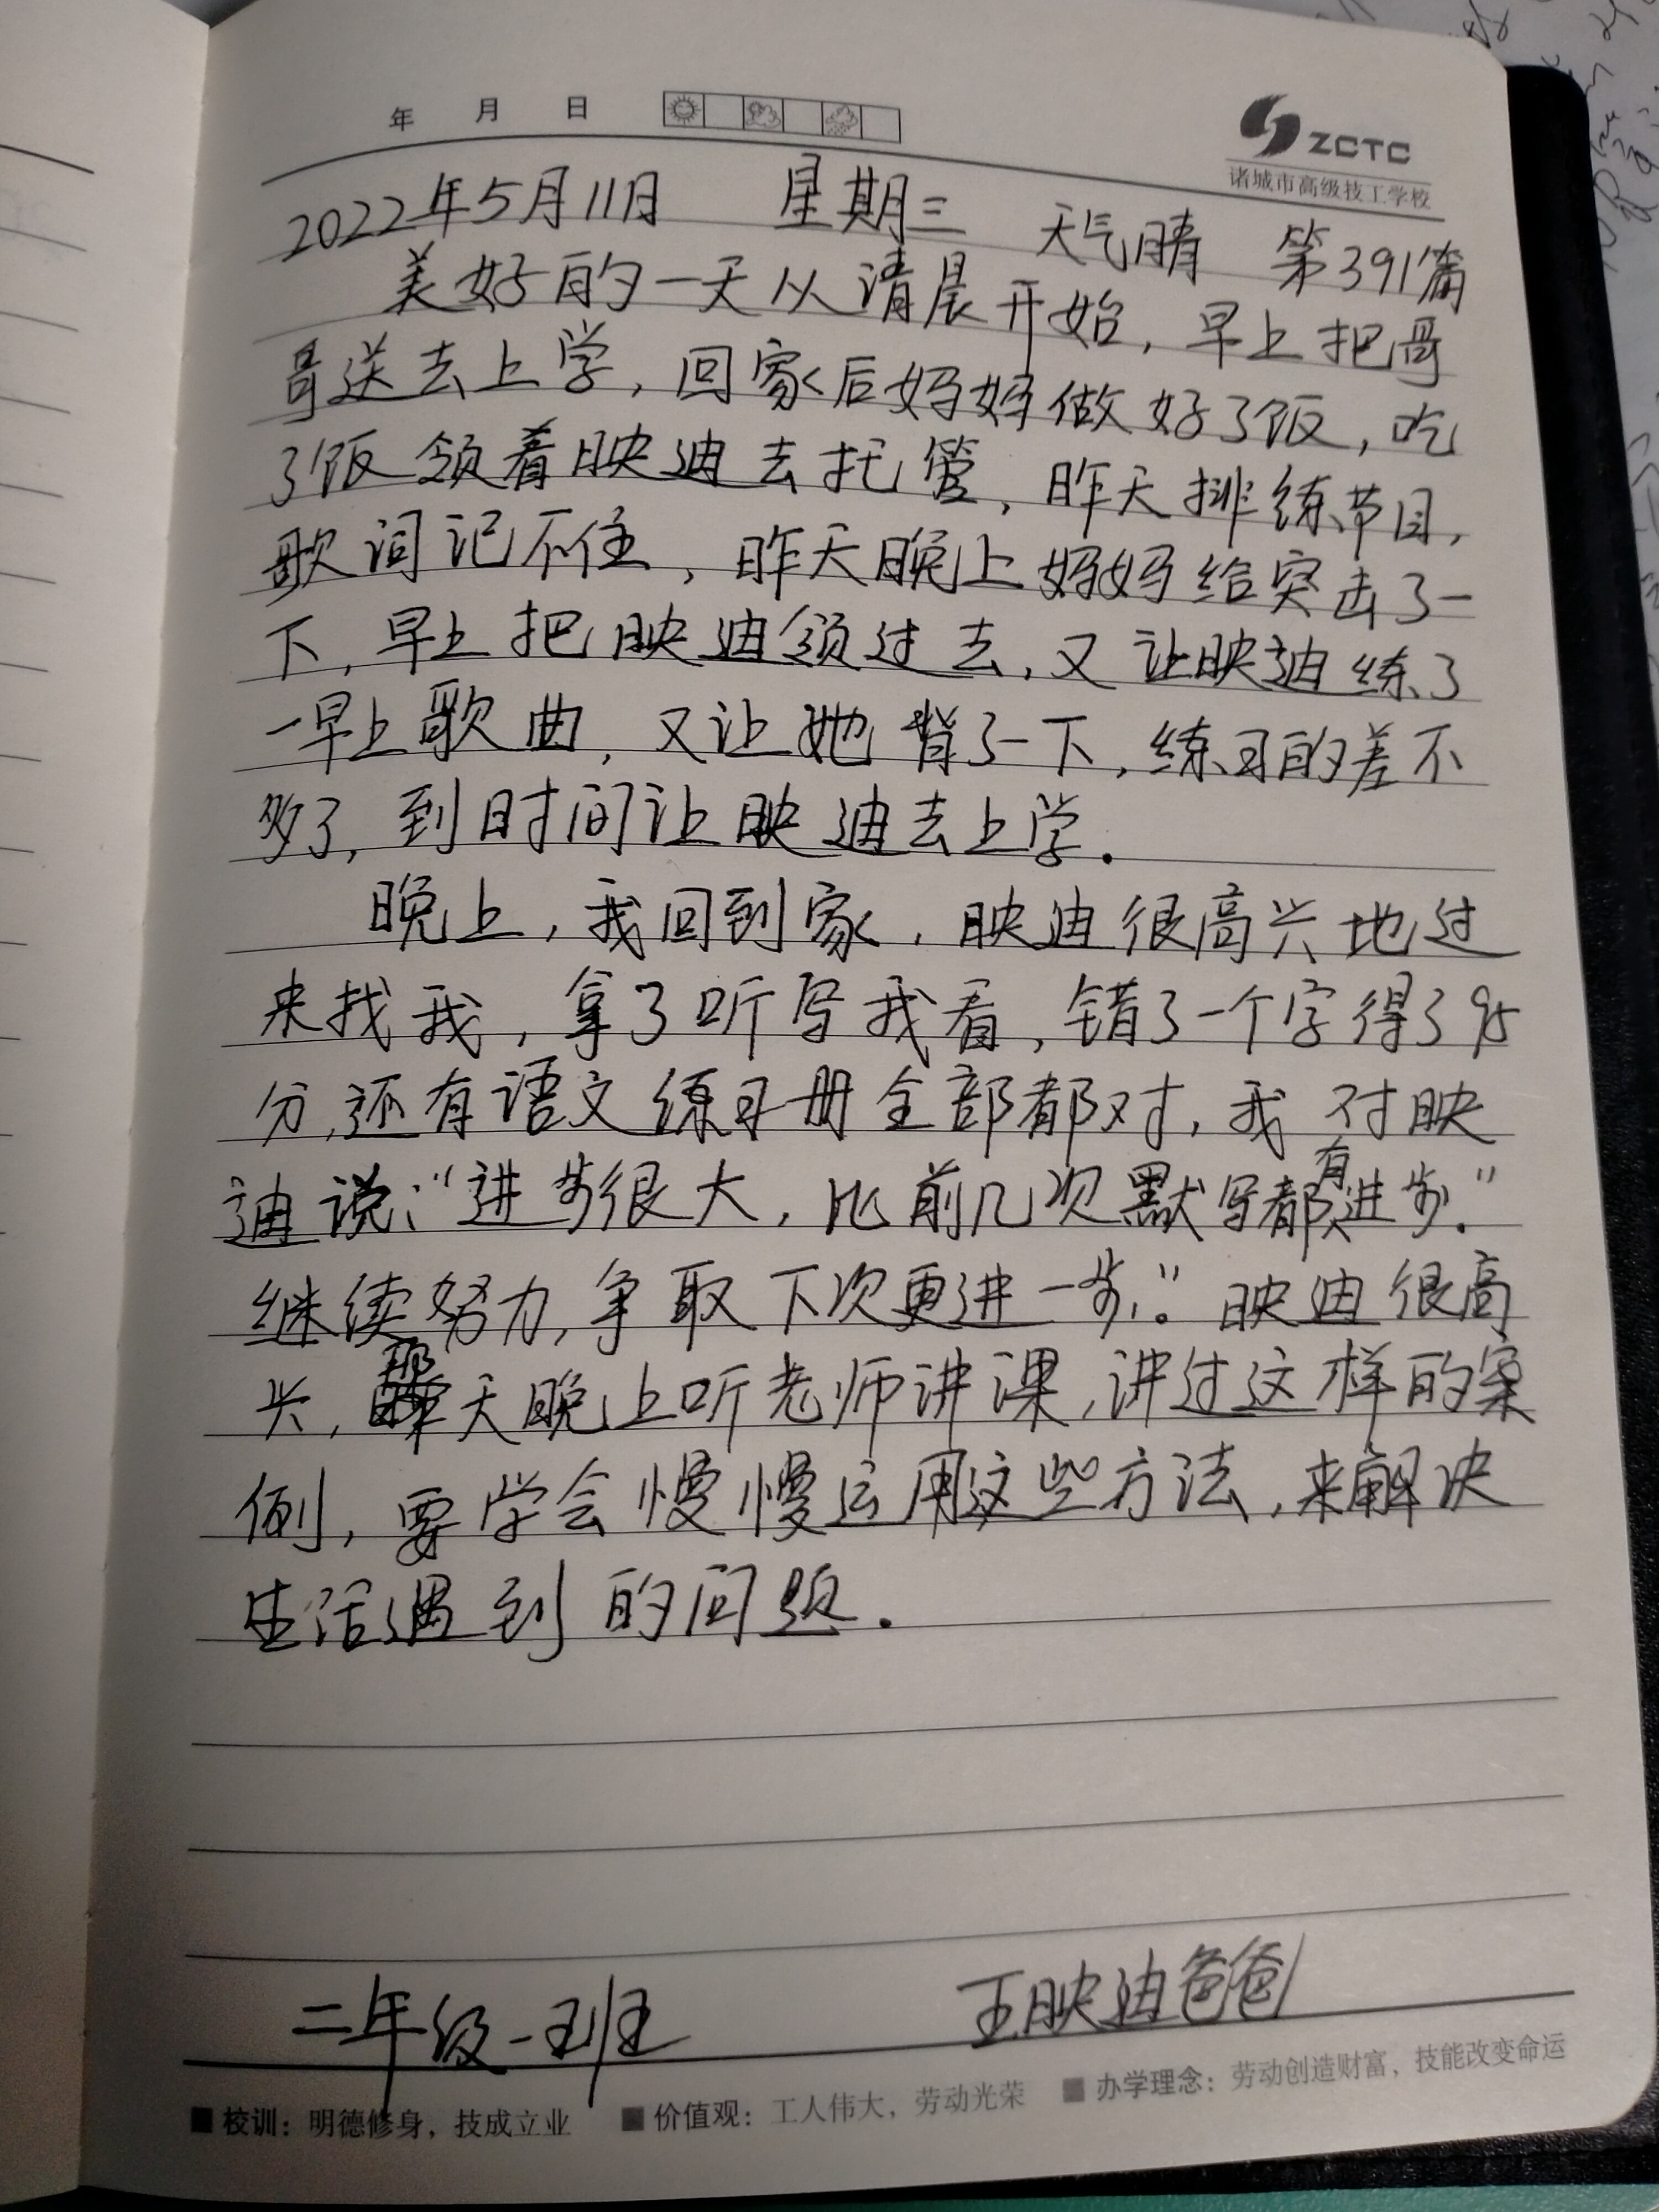 年 月 日
ZCTC
诸城市高级技工学校
2022年5月11日 星期三 天气晴 第391篇
美好的一天从清晨开始，早上把哥
哥送去上学，回家后妈妈做好了饭，吃
了饭领着映迪去托管，昨天排练节目，
歌词记不住，昨天晚上妈妈给突击了一
下，早上把映迪领过去，又让映迪练了
一早上歌曲，又让她背了一下，练习的差不
多了，到时间让映迪去上学．
晚上，我回到家，映迪很高兴地过
来找我，拿了听写我看，错了一个字得了95
分，还有语文练习册全部都对，我对映
迪说：“进步很大，比前几次默写都有进步．”
继续努力，争取下次更进一步。”映迪很高
兴，那天晚上听老师讲课，讲过这样的案
例，要学会慢慢运用这些方法，来解决
生活遇到的问题．
二年级一班 王映迪爸爸
校训：明德修身，技成立业 价值观：工人伟大，劳动光荣 办学理念：劳动创造财富，技能改变命运